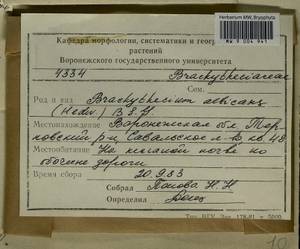 Herbarium MW, Bryophyta
MW 9 004 941
Кафедра морфологии, систематики и географии
растений
Воронежского государственного университета
4334 Brachytheciaceae
Сем.
Род и вид Brachythecium albicans
(Hedw.) B.S.G.
Местонахождение Воронежская обл. Тер-
новский р-н Савальское л-во кв 48
Местообитание На песчаной почве по
обочине дороги
Время сбора 20.9.83
Собрал Попова Н.Н.
Определил